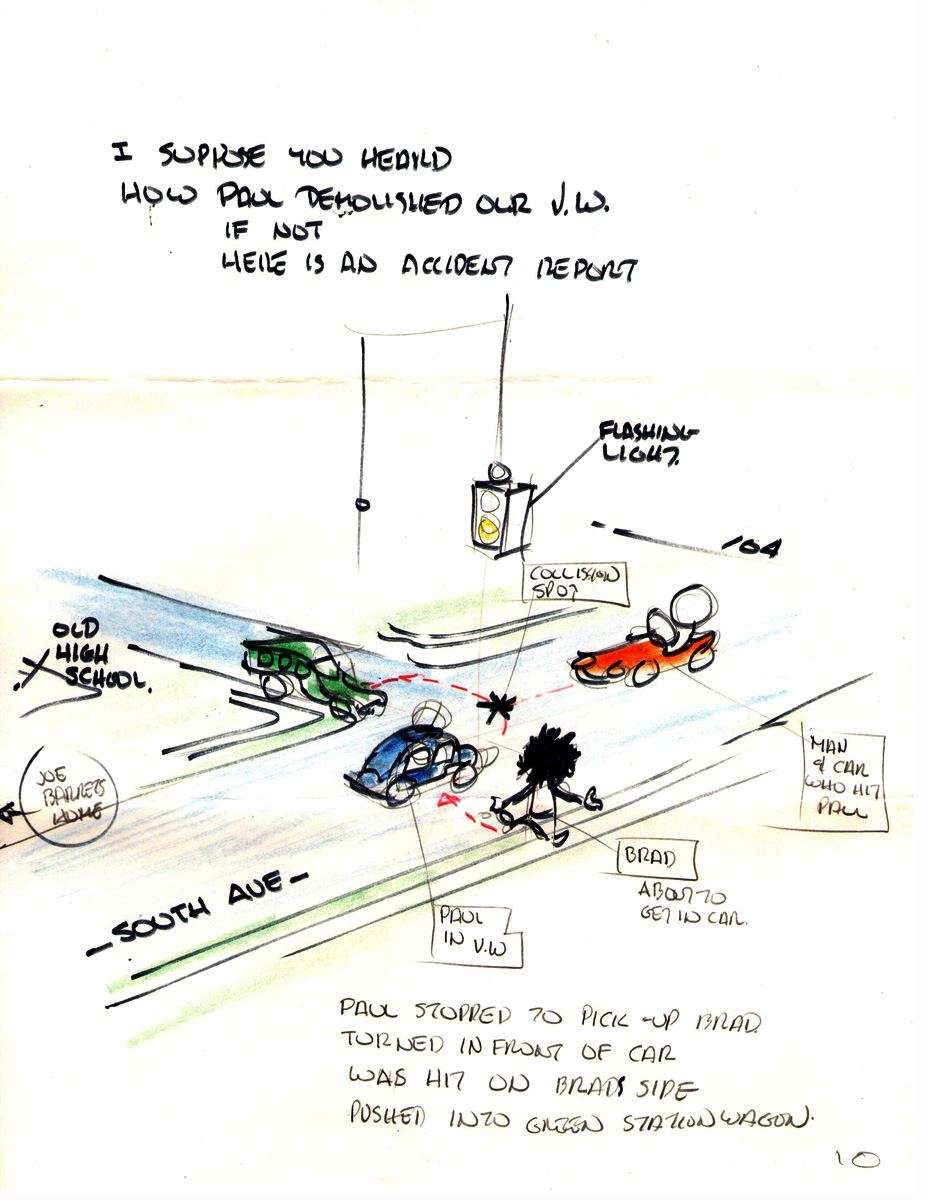 I SUPPOSE YOU HEARD
HOW PAUL DEMOLISHED OUR V.W.
IF NOT
HERE IS AN ACCIDENT REPORT
FLASHING
LIGHT.
104
COLLISION
SPOT
OLD
HIGH
SCHOOL.
MAN
& CAR
WHO HIT
PAUL
JOE
BARRETS
HOME
BRAD
ABOUT TO
GET IN CAR.
SOUTH AVE
PAUL
IN V.W
PAUL STOPPED TO PICK-UP BRAD
TURNED IN FRONT OF CAR
WAS HIT ON BRADS SIDE
PUSHED INTO GREEN STATION WAGON.
10